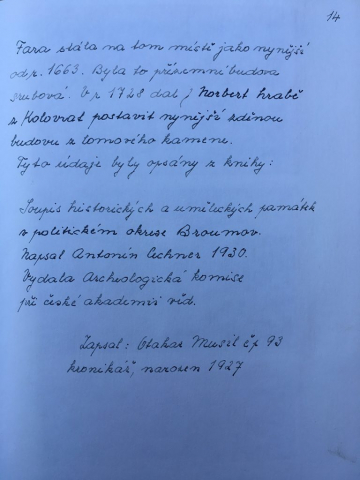 14
Fara stála na tom místě jako nynější
od r. 1663. Byla to přízemní budova
srubová. V r. 1728 dal / Norbert hrabě
z Kolovrat postavit nynější zděnou
budovu z lomového kamene.
Tyto údaje byly opsány z knihy:
Soupis historických a uměleckých památek
v politickém okrese Broumov.
Napsal Antonín Cechner 1930.
Vydala Archeologická komise
při české akademii věd.
Zapsal: Otakar Musil čp 93
kronikář, narozen 1927